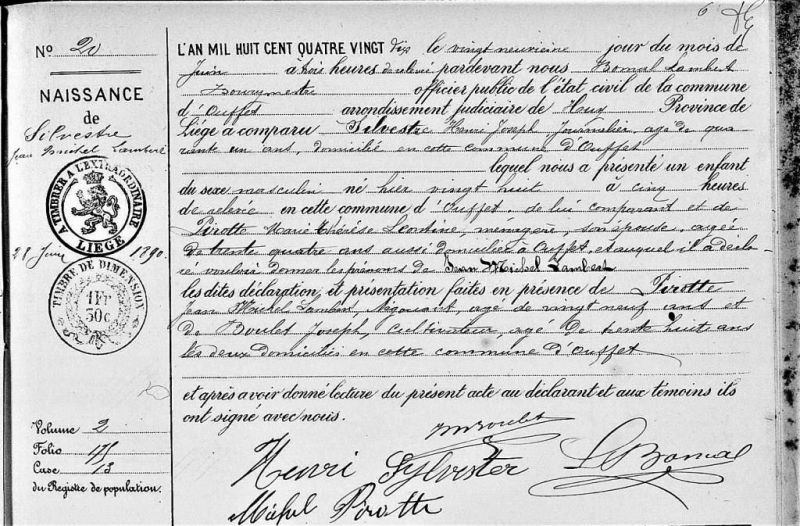 6
N° 20
NAISSANCE
de
Silvestre
Jean Michel Lambert
A TIMBRER A L'EXTRAORDINAIRE
LIEGE
28 Juin 1890.
TIMBRE DE DIMENSION
1 FR
30 C
Volume 2
Folio 45
Case 13
du Registre de population.
L'AN MIL HUIT CENT QUATRE VINGT dix le vingt neuvieme jour du mois de
Juin à trois heures de relevée pardevant nous Bomal Lambert
Bourgmestre officier public de l'état civil de la commune
d'Ouffet arrondissement judiciaire de Huy Province de
Liége a comparu Silvestre Henri Joseph Journalier, agé de qua
rante un ans, domicilié en cette commune d'Ouffet
lequel nous a présenté un enfant
du sexe masculin né hier vingt huit à cinq heures
de relevée en cette commune d'Ouffet de lui comparant et de
Pirotte Marie Thérèse Léontine, ménagère, son épouse, agée
de trente quatre ans aussi domiciliée à Ouffet, et auquel il a décla
ré vouloir donner les prénoms de Jean Michel Lambert
les dites déclaration et présentation faites en présence de Pirotte
Jean Michel Lambert, Négociant, agé de vingt neuf ans et
de Boulet Joseph, Cultivateur, agé de trente huit ans
les deux domiciliés en cette commune d'Ouffet
et après avoir donné lecture du présent acte au déclarant et aux témoins ils
ont signé avec nous.
Boulet
Henri Sylvester L Bomal
Michel Pirotte